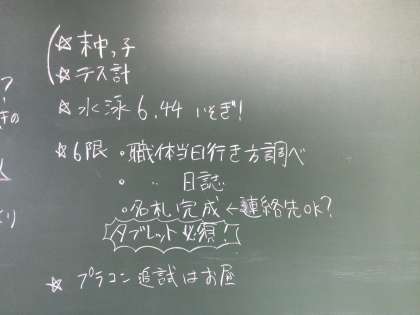 ☆末中っ子
☆テス計
☆水泳6.44 いそぎ!
☆6限 ・職体当日行き方調べ
・ 〃 日誌
・名札完成←連絡先OK?
タブレット必須!
☆プラコン追試はお昼